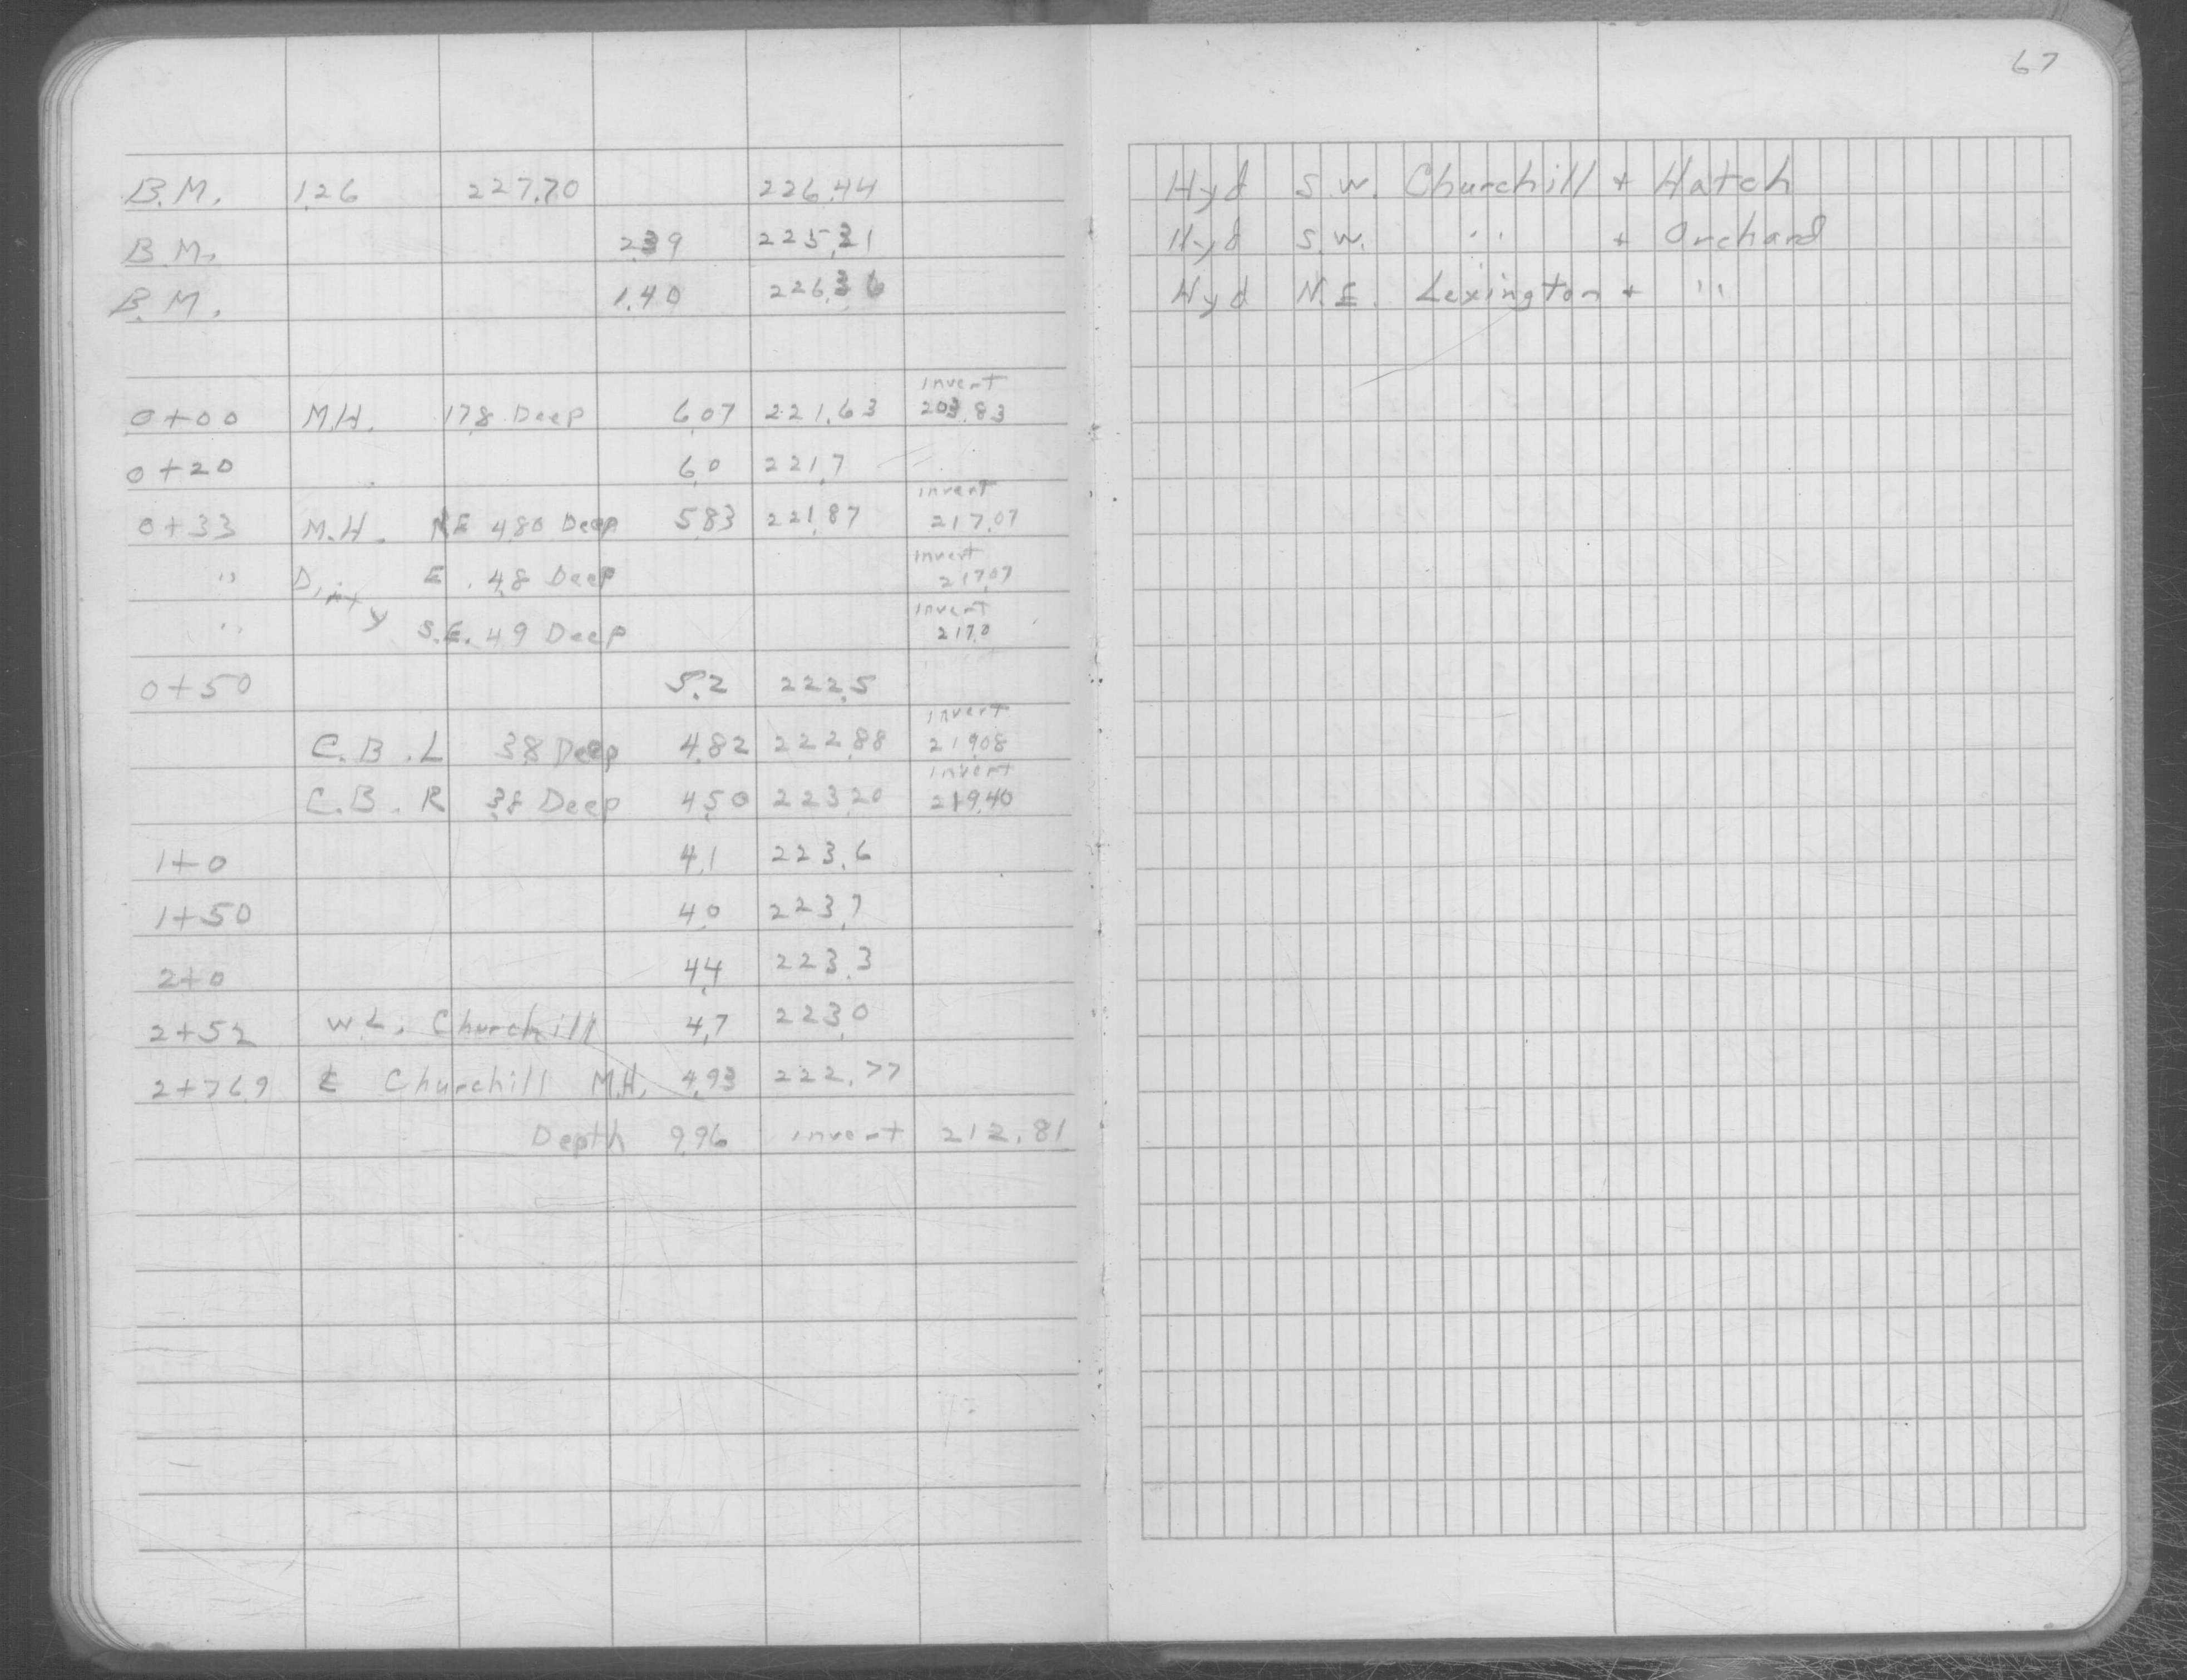 67
B.M. 1.26 227.70 226.44 Hyd S.W. Churchill + Hatch
B.M. 2.39 225.31 Hyd S.W. " + Orchard
B.M. 1.40 226.36 Hyd N.E. Lexington + "
invert
0+00 M.H. 17.8 Deep 6.07 221.63 203.83
0+20 6.0 221.7
invert
0+33 M.H. NE 4.80 Deep 5.83 221.87 217.07
invert
" Dirty E. 4.8 Deep 217.07
invert
" S.E. 4.9 Deep 217.0
0+50 5.2 222.5
invert
C.B. L 3.8 Deep 4.82 222.88 219.08
invert
C.B. R 3.8 Deep 4.50 223.20 219.40
1+0 4.1 223.6
1+50 4.0 223.7
2+0 4.4 223.3
2+52 W.L. Churchill 4.7 223.0
2+76.9 ℄ Churchill M.H. 4.93 222.77
Depth 9.96 invert 212.81